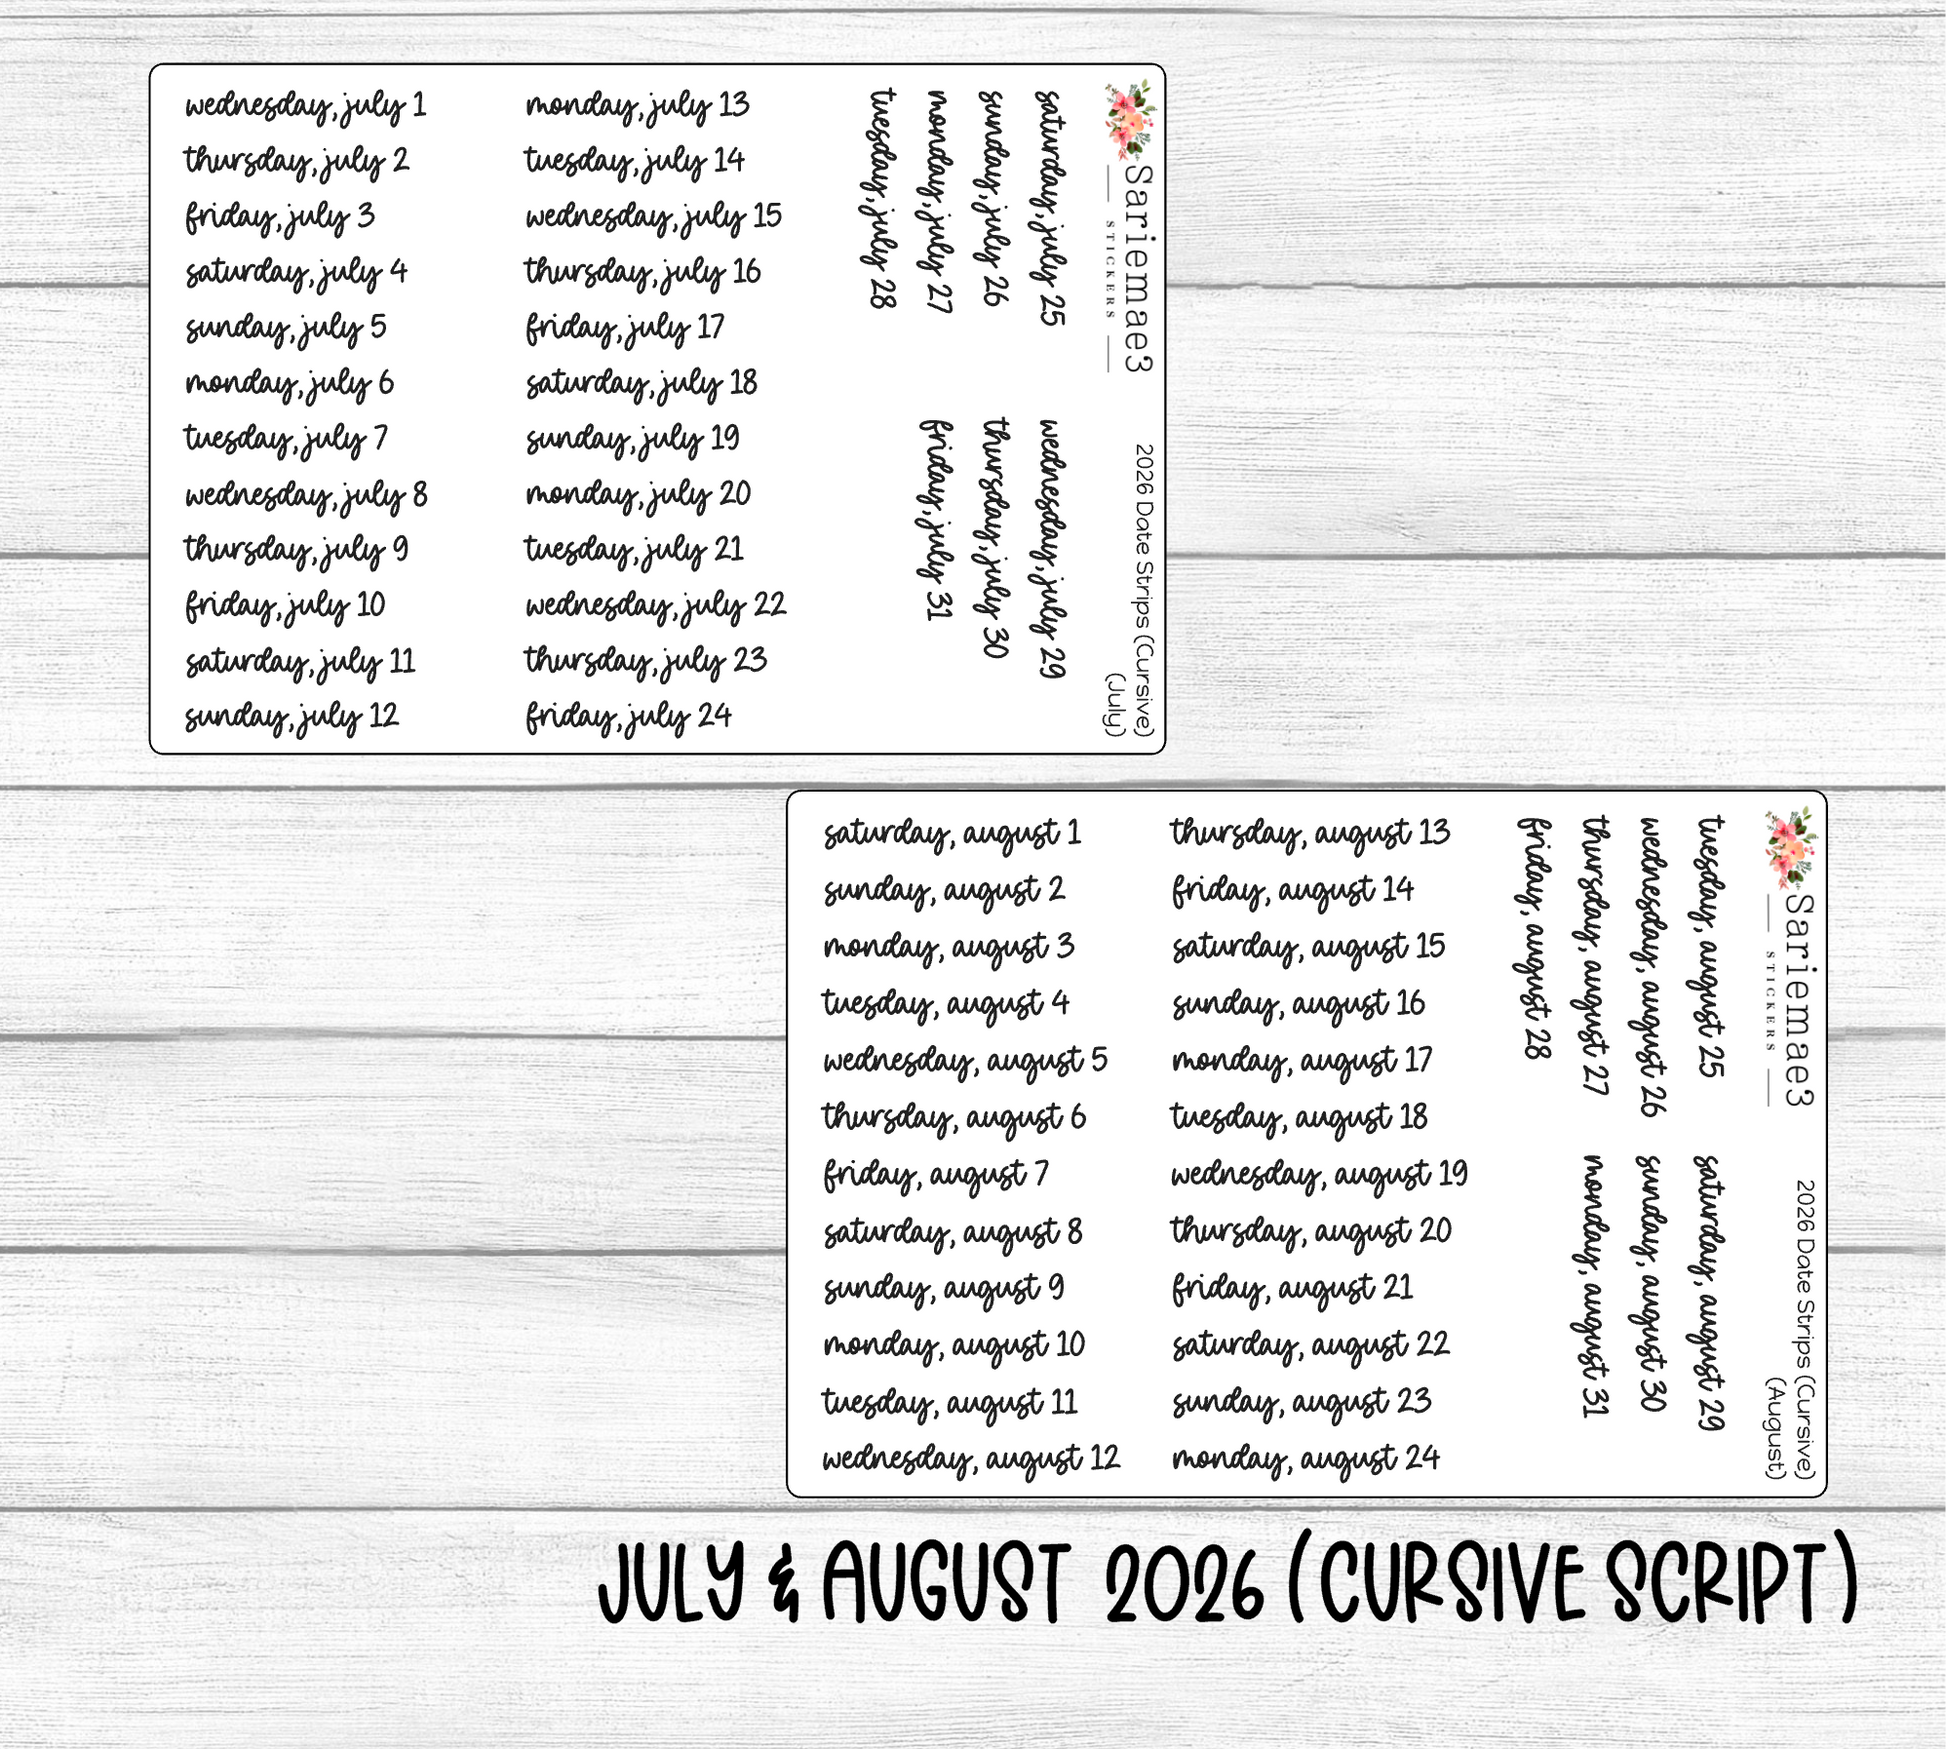 wednesday, july 1
thursday, july 2
friday, july 3
saturday, july 4
sunday, july 5
monday, july 6
tuesday, july 7
wednesday, july 8
thursday, july 9
friday, july 10
saturday, july 11
sunday, july 12
monday, july 13
tuesday, july 14
wednesday, july 15
thursday, july 16
friday, july 17
saturday, july 18
sunday, july 19
monday, july 20
tuesday, july 21
wednesday, july 22
thursday, july 23
friday, july 24
saturday, july 25
sunday, july 26
monday, july 27
tuesday, july 28
wednesday, july 29
thursday, july 30
friday, july 31
Sariemae3
STICKERS
2026 Date Strips (Cursive)
(July)
saturday, august 1
sunday, august 2
monday, august 3
tuesday, august 4
wednesday, august 5
thursday, august 6
friday, august 7
saturday, august 8
sunday, august 9
monday, august 10
tuesday, august 11
wednesday, august 12
thursday, august 13
friday, august 14
saturday, august 15
sunday, august 16
monday, august 17
tuesday, august 18
wednesday, august 19
thursday, august 20
friday, august 21
saturday, august 22
sunday, august 23
monday, august 24
tuesday, august 25
wednesday, august 26
thursday, august 27
friday, august 28
saturday, august 29
sunday, august 30
monday, august 31
Sariemae3
STICKERS
2026 Date Strips (Cursive)
(August)
JULY & AUGUST 2026 (CURSIVE SCRIPT)